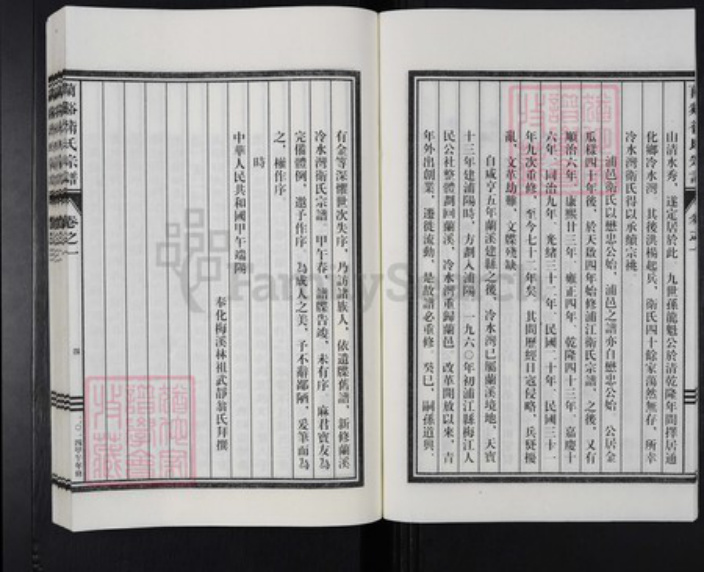 山清水秀、遂定居於此 九世孫龍魁公於清乾隆年間擇居通
化鄉冷水灣 其後洪楊起兵、衛氏四十餘家蕩然無存、所幸
冷水灣衛氏得以承續宗祧
浦邑衛氏以懋忠公始、浦邑之譜亦自懋忠公始 公居金
瓜樣四十年後、於天啟四年始修浦江衛氏宗譜、之後、又有
順治六年、康熙廿三年、雍正四年、乾隆四十三年、嘉慶十
六年、同治九年、光緒三十一年、民國二十年、民國三十一
年九次重修、至今七十二年矣 其間歷經日寇侵略、兵燹擾
亂、文革劫難、文牒殘缺
自咸亨五年蘭溪建縣之後、冷水灣已屬蘭溪境地、天寶
十三年建浦陽時、方劃入浦陽 一九六〇年初浦江縣梅江人
民公社整體劃回蘭溪、冷水灣重歸蘭邑 改革開放以來、青
年外出創業、遷徙流動、是故譜必重修 癸巳、嗣孫道興、
有金等深懼世次失序、乃訪諸族人、依遺牒舊譜、新修蘭溪
冷水灣衛氏宗譜 甲午春、譜牒告竣、未有序 麻君寶友為
完備體例、邀予作序 為成人之美、予不辭鄙陋、爰筆而為
之、權作序
時
中華人民共和國甲午端陽
奉化梅溪林祖武靜翁氏拜撰
蘭谿衛氏宗譜 卷之一
四
二〇一四甲午年修
FamilySearch